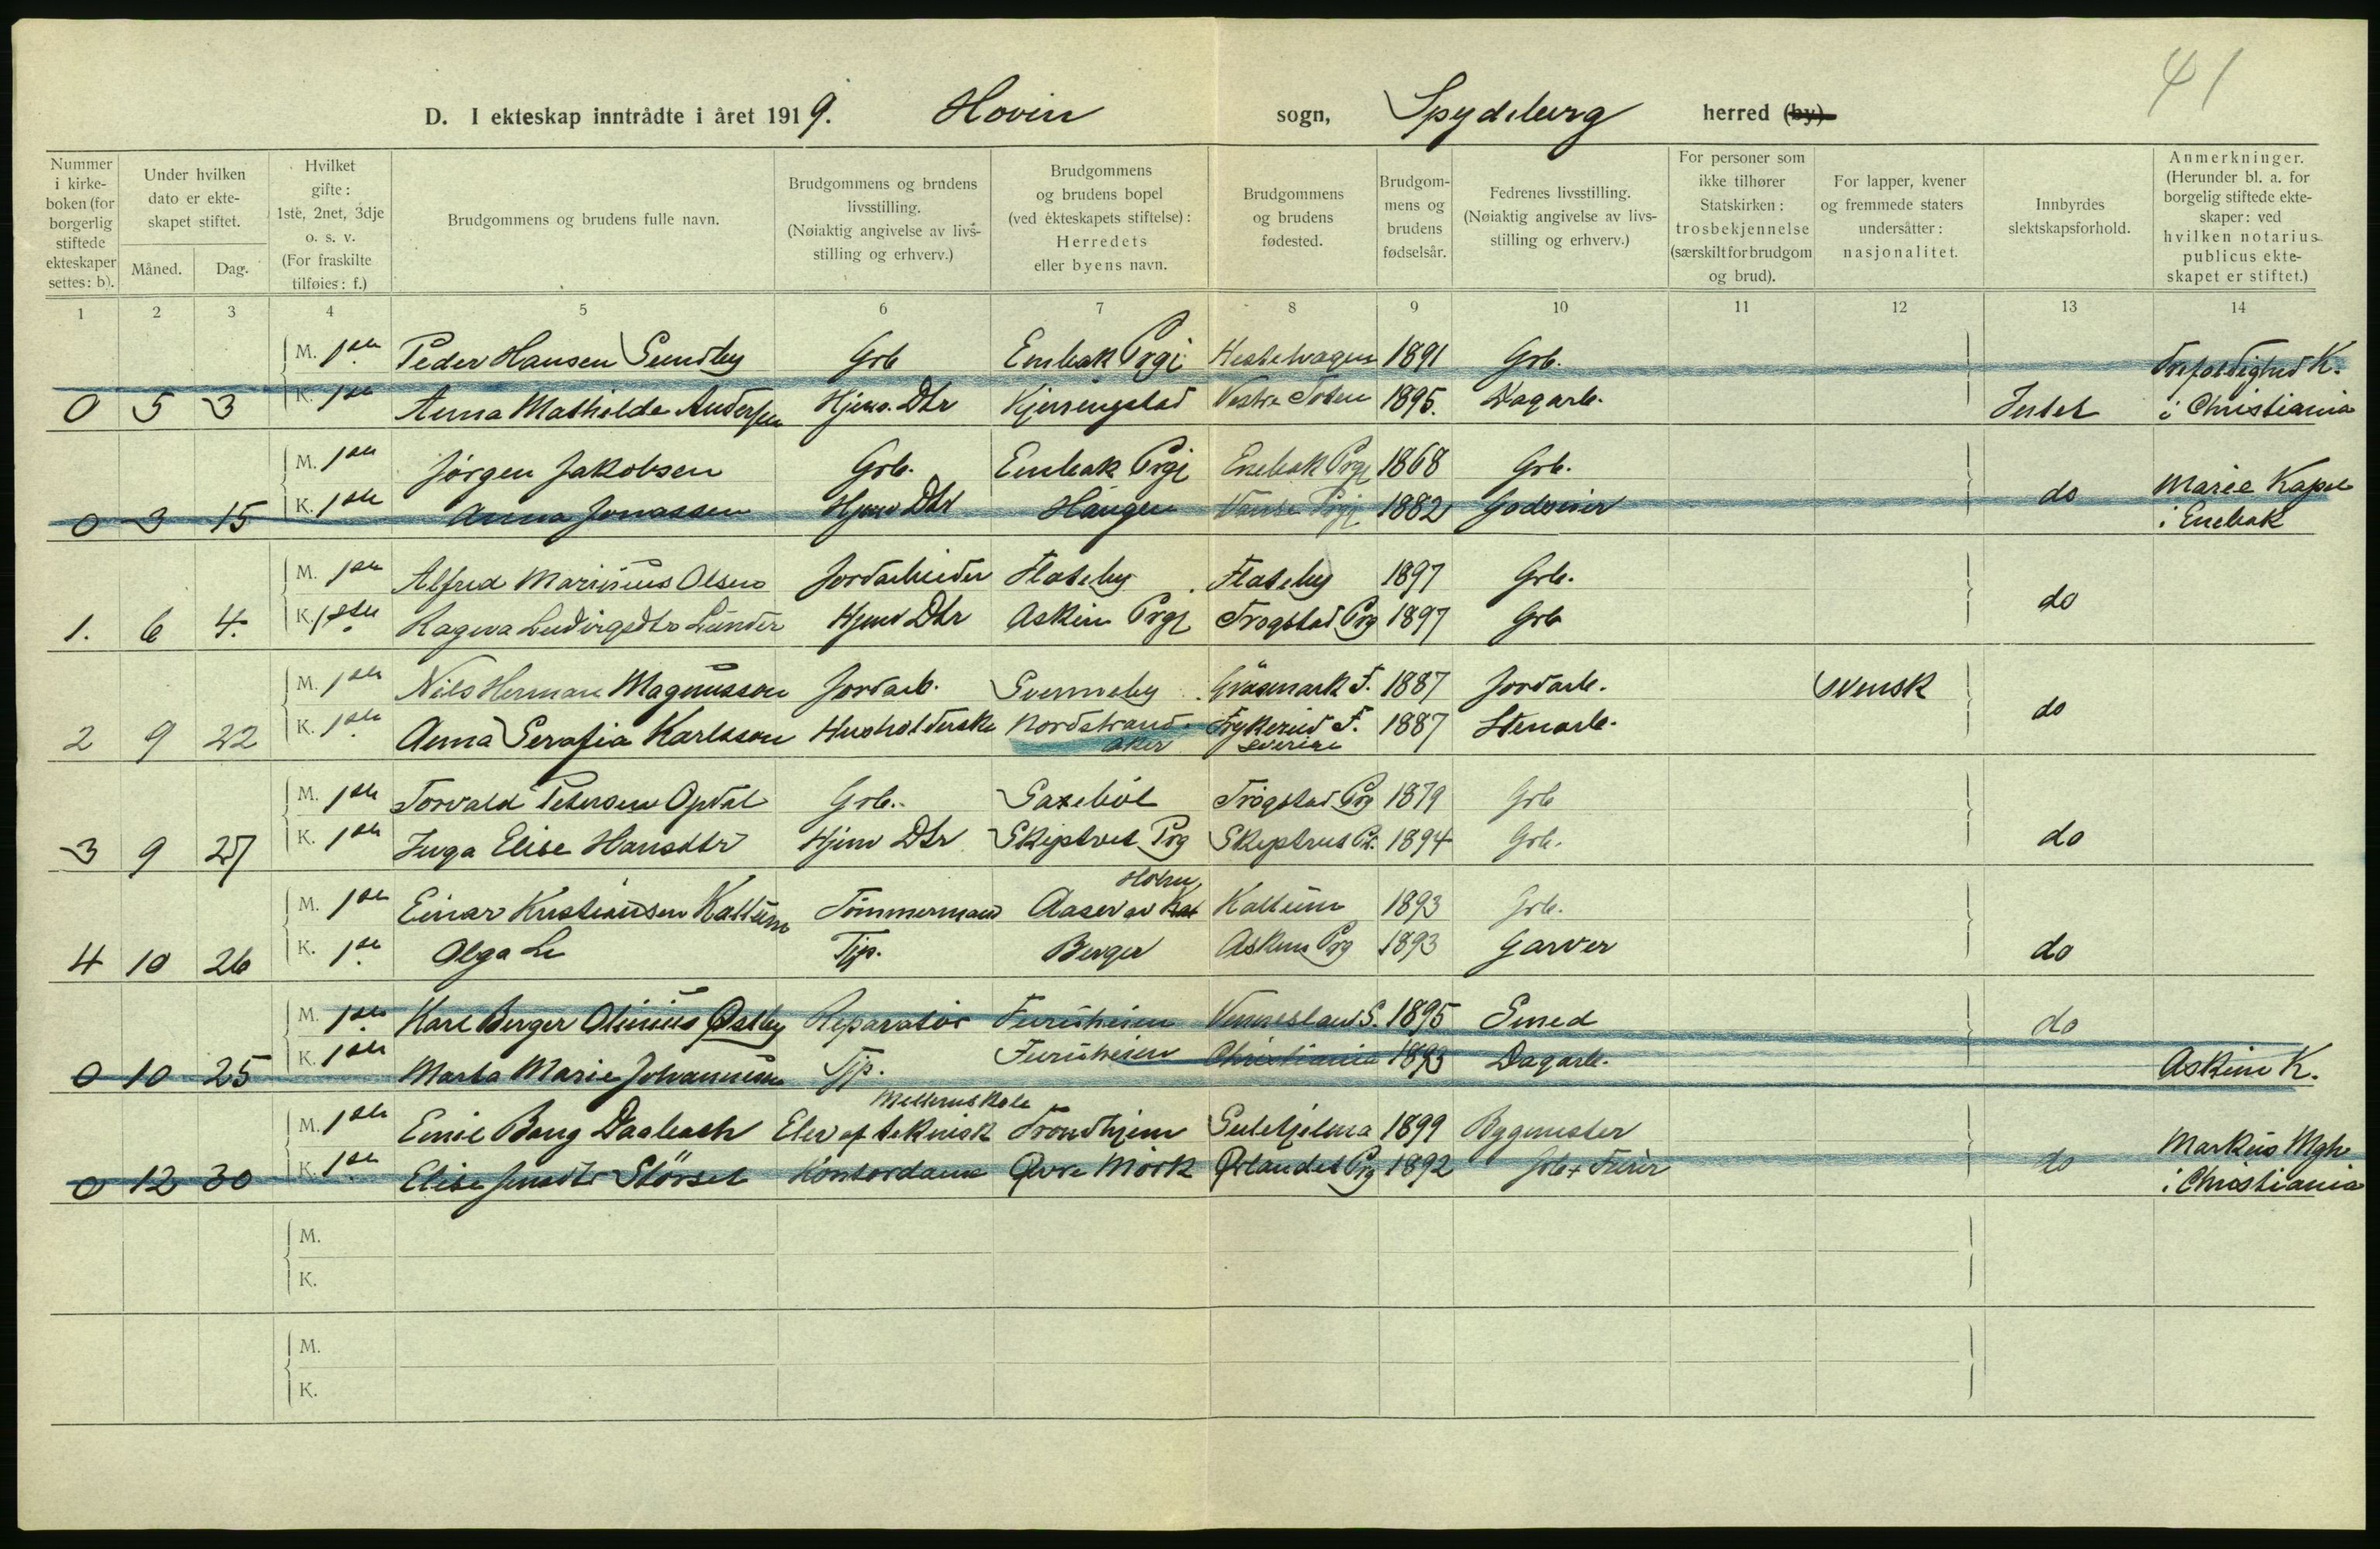 41
D. I ekteskap inntrådte i året 1919. Hovin sogn, Spydeberg herred (by)
Nummer i kirkeboken (for borgerlig stiftede ekteskaper settes: b).
Under hvilken dato er ekteskapet stiftet.
Måned. Dag.
Hvilket gifte: 1ste, 2net, 3dje o. s. v. (For fraskilte tilføies: f.)
Brudgommens og brudens fulle navn.
Brudgommens og brudens livsstilling. (Nøiaktig angivelse av livsstilling og erhverv.)
Brudgommens og brudens bopel (ved ekteskapets stiftelse): Herredets eller byens navn.
Brudgommens og brudens fødested.
Brudgommens og brudens fødselsår.
Fedrenes livsstilling. (Nøiaktig angivelse av livsstilling og erhverv.)
For personer som ikke tilhører Statskirken: trosbekjennelse (særskilt for brudgom og brud).
For lapper, kvener og fremmede staters undersåtter: nasjonalitet.
Innbyrdes slektskapsforhold.
Anmerkninger. (Herunder bl. a. for borgelig stiftede ekteskaper: ved hvilken notarius publicus ekteskapet er stiftet.)
1 2 3 4 5 6 7 8 9 10 11 12 13 14
M. 1ste Peder Hansen Sundby Grb Enebak Prgj 1891 Grb. Trefoldighed K.
0 5 3 K. 1ste Anna Mathilde Andersen Hjem. Dtr Kjensengstad Vestre Toten 1895. Dagarb. Intet i Christiania
M. 1ste Jørgen Jakobsen Grb. Enebak Prgj Enebak Prgj 1868 Grb. Marie Kapel
0 3 15 K. 1ste Anna Jonassen Hjemv Dtr Haugen Vanse Prgj 1882 Godseier do i Enebak
M. 1ste Alfred Marinius Olsen Jordarbeider Flateby Flateby 1897 Grb.
1. 6 4. K. 1ste Ragna Ludvigsdtr Lunder Hjemv Dtr Askim Prgj Trøgstad Prg 1897 Grb do
M. 1ste Nils Herman Magnusson Jordarb. Svenneby Gräsmark F. 1887 Jordarb. svensk
2 9 22 K. 1ste Anna Serafia Karlsson Husholderske Nordstrand. Frykerud F. 1887 Stenarb. do
Aker Sverige
M. 1ste Torvald Petersen Opdal Grb. Saxebøl Trøgstad Prg 1879 Grb
3 9 27 K. 1ste Inga Elise Hansdtr Hjemv Dtr Skiptvet Prg Skiptvet Pr. 1894 Grb. do
M. 1ste Einar Kristiansen Kattum Tømmermand Aaser av Kat Kattum 1893 Grb.
4 10 26 K. 1ste Olga Le Tjp. Berger Askim Prg 1893 Garver do
M. 1ste Karl Berger Olinius Østby Reparatør Furuheim Venneslan S. 1895 Smed do
0 10 25 K. 1ste Marta Marie Johannesen Tjp. Furuheim Christiania 1893 Dagarb. Askim K.
Mellemskole
M. 1ste Emil Bang Daaleach Elev af teknisk Trondhjem Sulitjelma 1899 Bygmester Markus Mgh
0 12 30 K. 1ste Elise Jensdtr Størset Kontordame Øvre Mørk Ørlandet Prg 1892 Grb + Furer do i Christiania
M.
K.
M.
K.